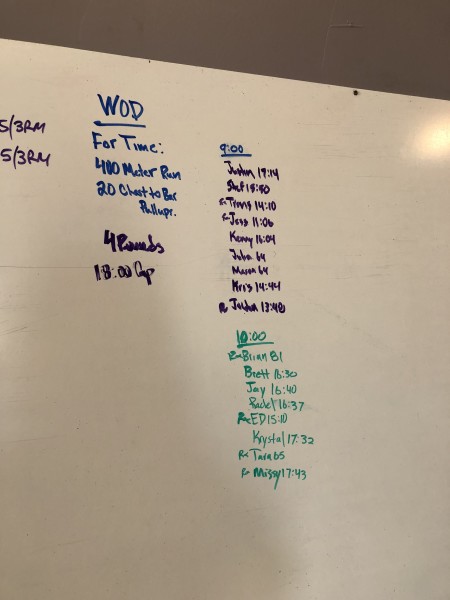 5/3RM
5/3RM
WOD
For Time:
400 Meter Run
20 Chest to Bar
Pullups.
4 Rounds
18:00 Cap
9:00
Justin 17:14
Stef 15:50
Rx Travis 14:10
Rx Jess 11:06
Kenny 16:04
Julia 64
Mason 64
Kris 14:44
Rx 13:48
10:00
Rx Brian 81
Brett 16:30
Jay 16:40
Rachel 16:37
Rx ED 15:10
Krystal 17:32
Rx Tara 65
Rx Missy 17:43